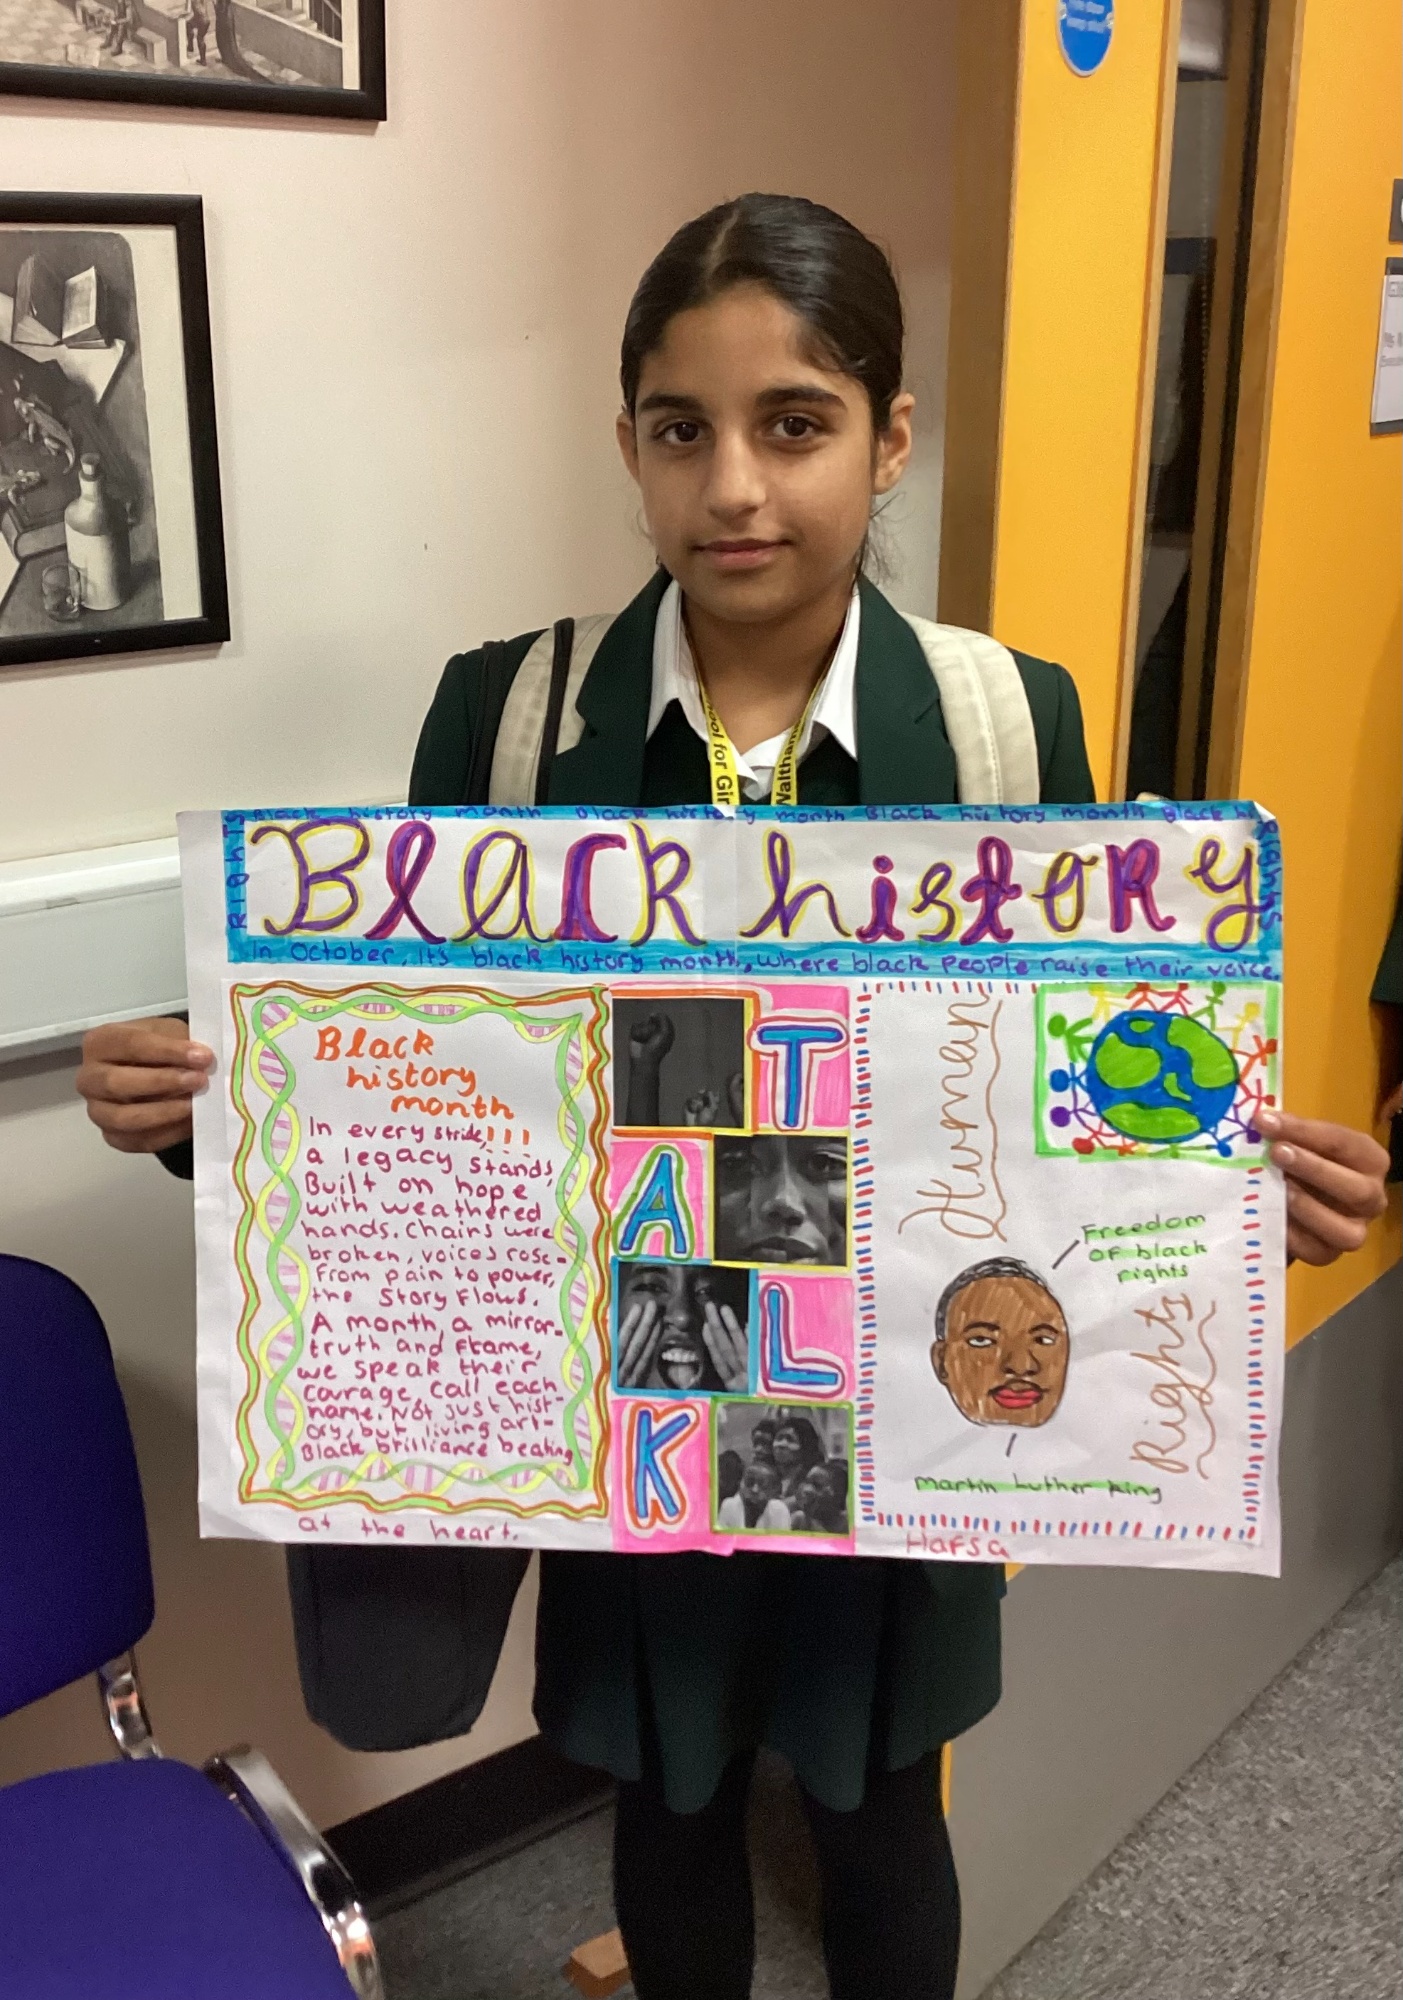 Black history month Black history month Black history month Black hi
Rights
Black history
Rights
In October, it's black history month, where black people raise their voice.
Black
history
month
In every stride, !!!
a legacy stands,
Built on hope
with weathered
hands. Chains were
broken, voices rose-
From pain to power,
the story flows.
A month, a mirror-
truth and flame,
we speak their
courage, call each
name. Not just hist-
ory, but living art-
Black brilliance beating
at the heart.
T
A
L
K
Human
Freedom
of black
rights
Rights
Martin Luther King
Hafsa
ool for Gir
Waltham